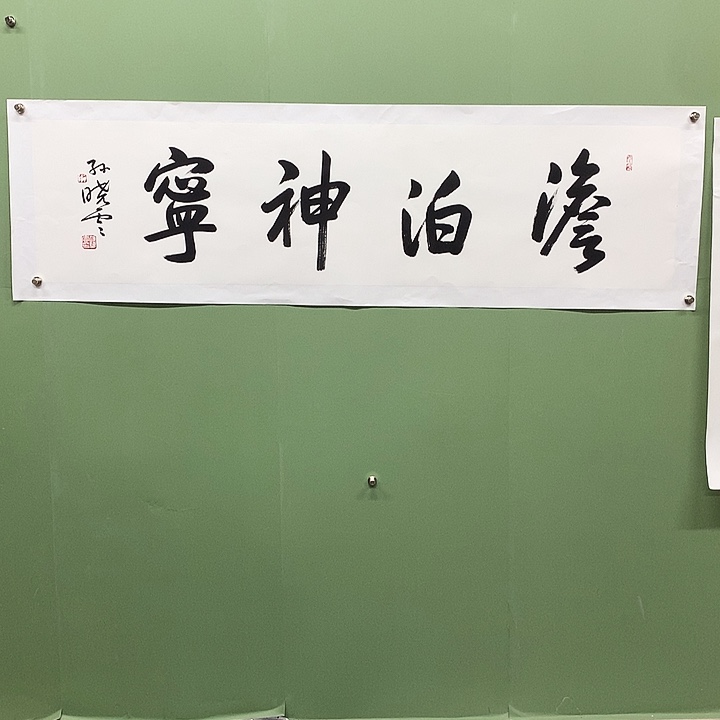 澹泊神寧
孫曉雲